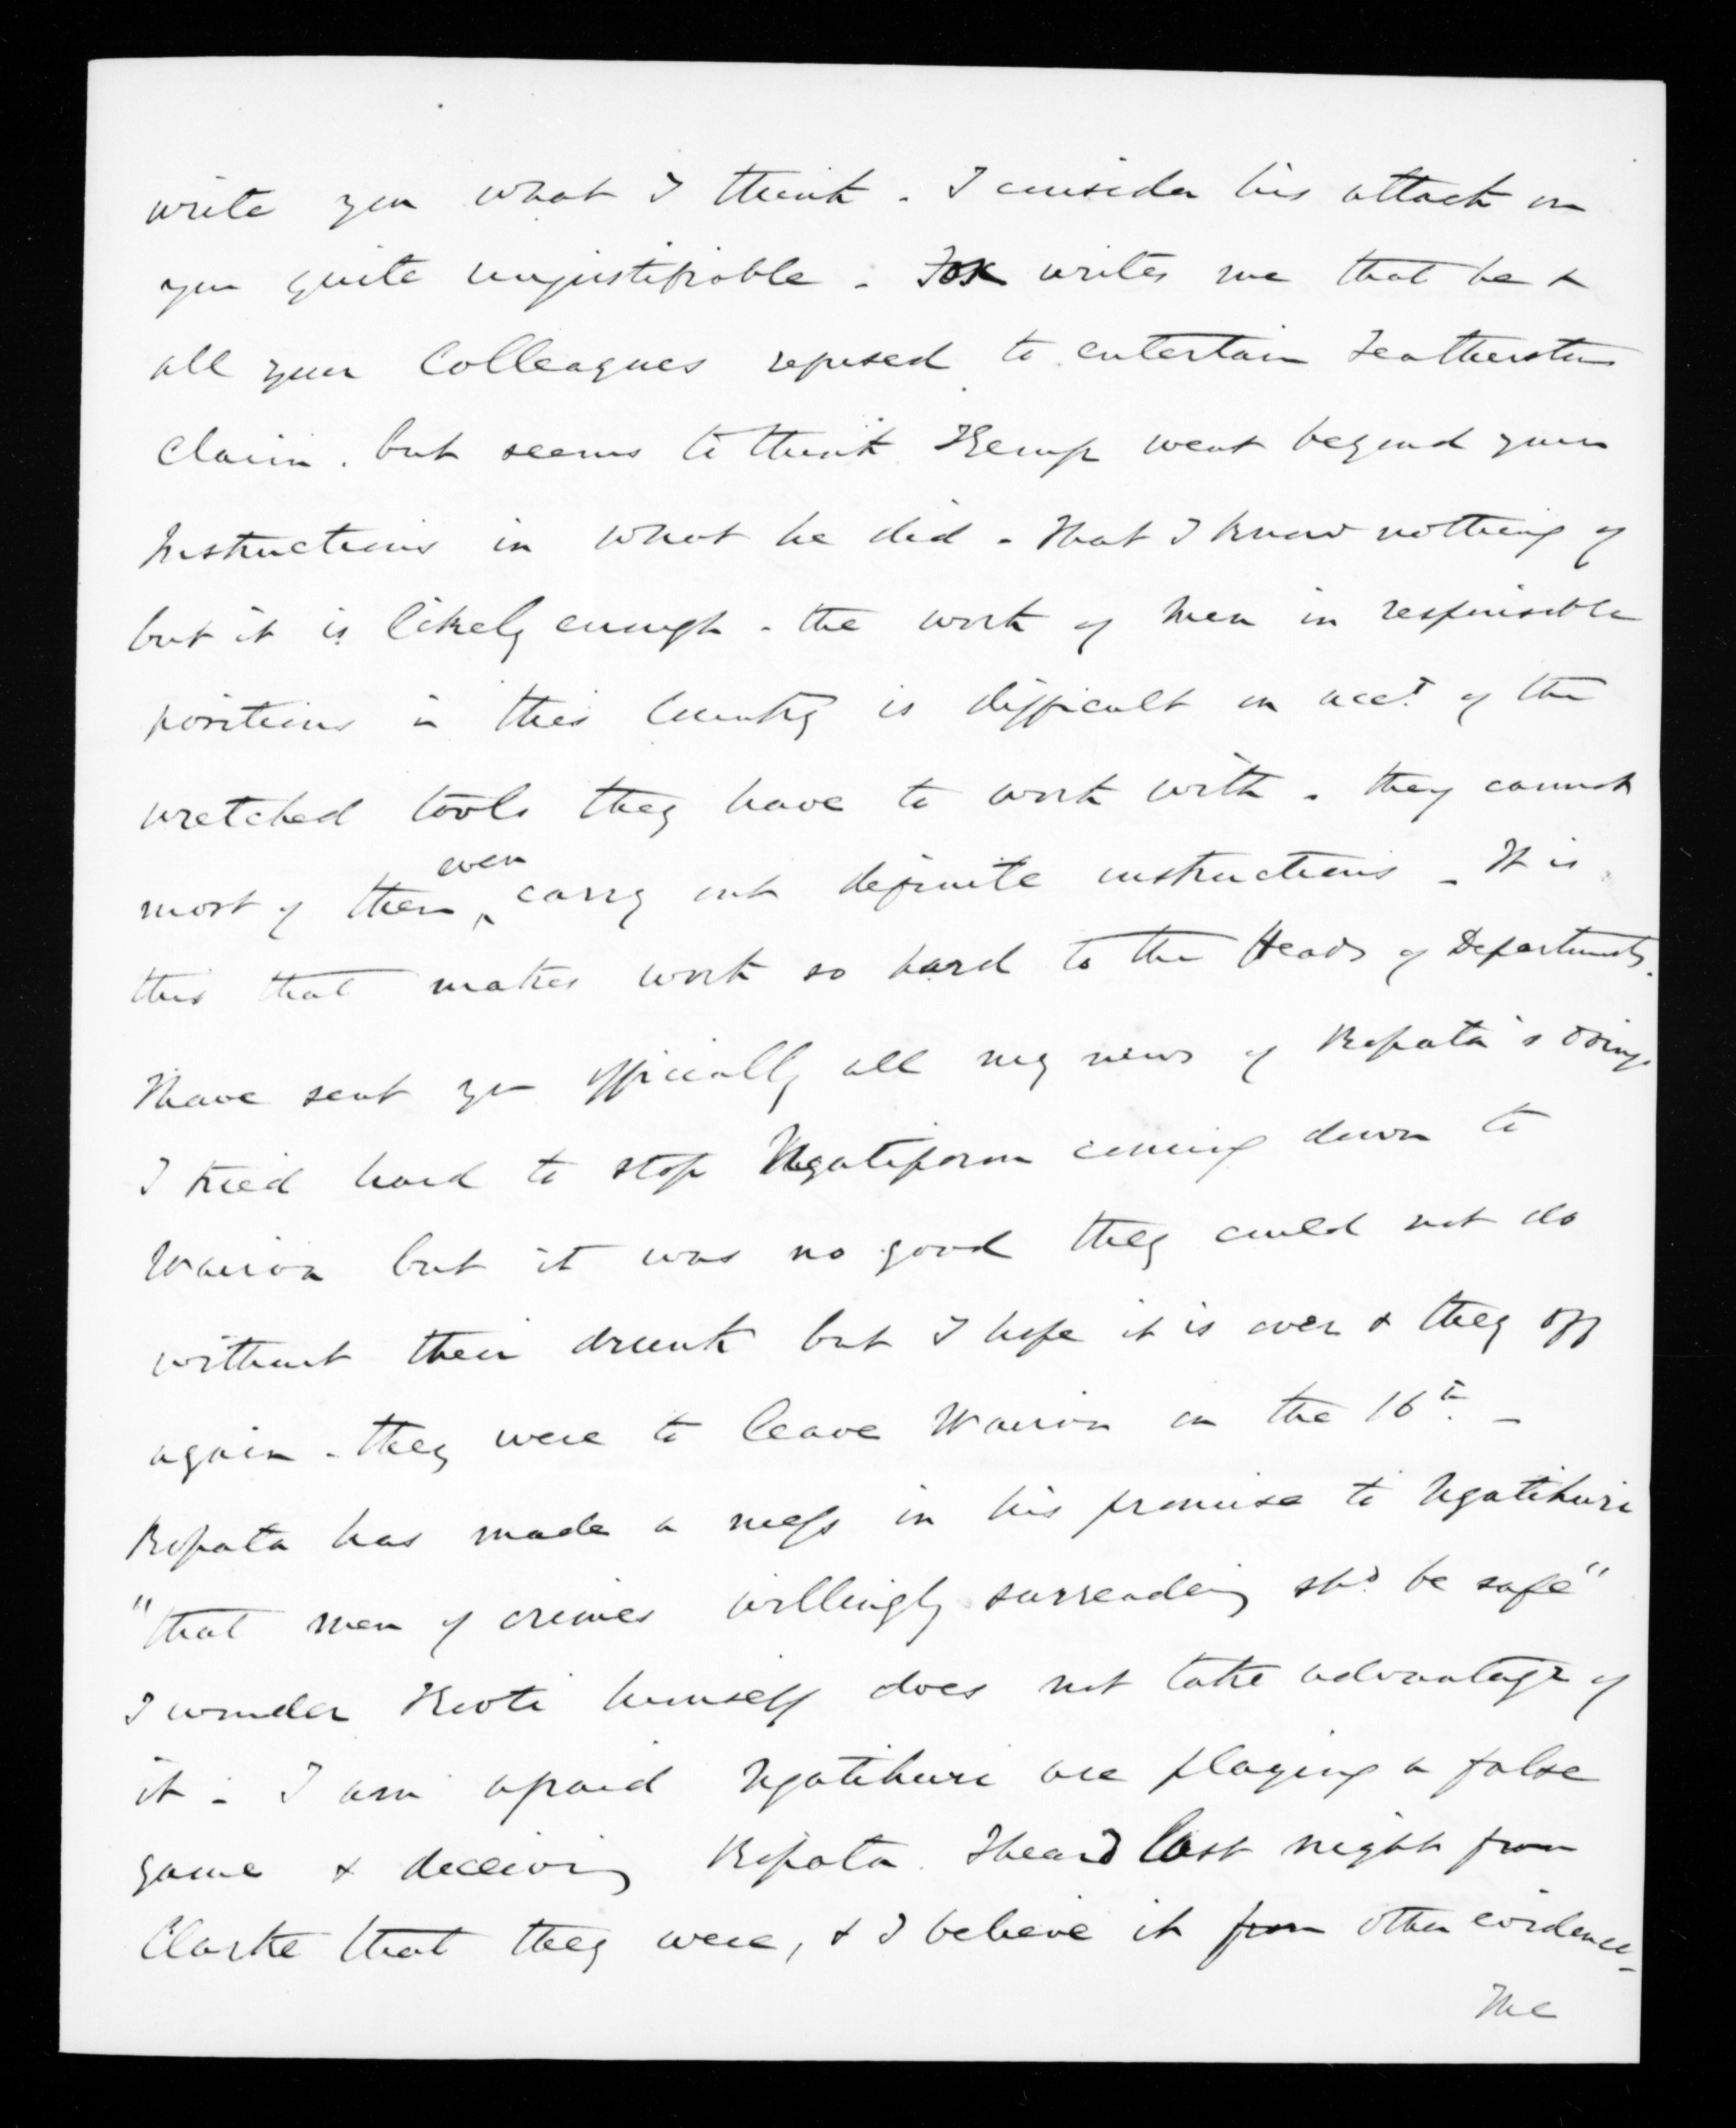 write you what I think - I consider his attack on
you quite unjustifiable - Fox writes me that he &
all your Colleagues refused to entertain Featherston
claim. but seems to think Kemp went beyond your
Instructions in what he did - that I know nothing of
but it is likely enough - the work of men in responsible
positions in this Country is difficult on acct. of the
wretched tools they have to work with - they cannot
most of them even carry out definite instructions - It is
this that makes work so hard to the Heads of Departments.
I have sent you officially all my news of Ropata's doings
I tried hard to stop Ngatiporou coming down to
Wairoa but it was no good they could not do
without their drunk but I hope it is over & they off
again - they were to leave Wairoa on the 16th. -
Ropata has made a mess in his promise to Ngatihuri
"that men of crimes willingly surrendering shd. be safe"
I wonder Kooti himself does not take advantage of
it - I am afraid Ngatihuri are playing a false
game & deceiving Ropata. I heard last night from
Clarke that they were, & I believe it from other evidence -
The